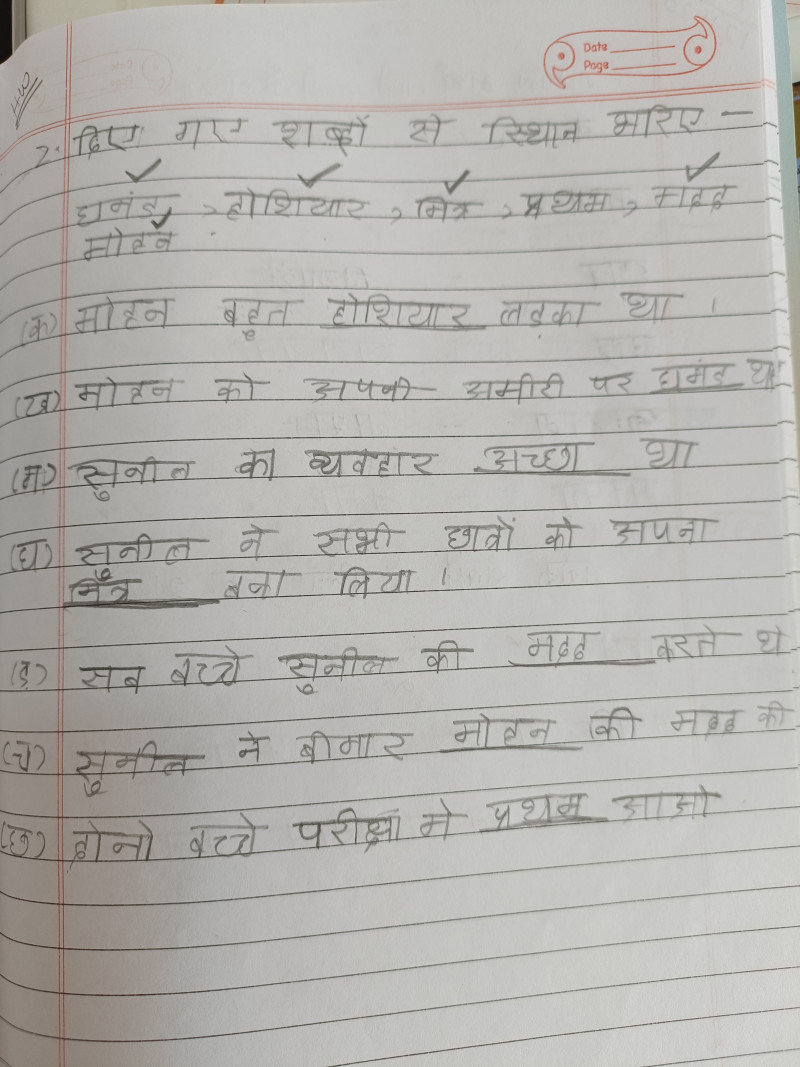 Date
Page
HW
2. दिए गए शब्दों से स्थान भरिए –
घमंड, होशियार, मित्र, प्रथम, मदद
मोहन
(क) मोहन बहुत होशियार लड़का था ।
(ख) मोहन को अपनी अमीरी पर घमंड था
(ग) सुनील का व्यवहार अच्छा था
(घ) सुनील ने सभी छात्रों को अपना
मित्र बना लिया ।
(ङ) सब बच्चे सुनील की मदद करते थे
(च) सुनील ने बीमार मोहन की मदद की
(छ) दोनो बच्चे परीक्षा मे प्रथम आओ